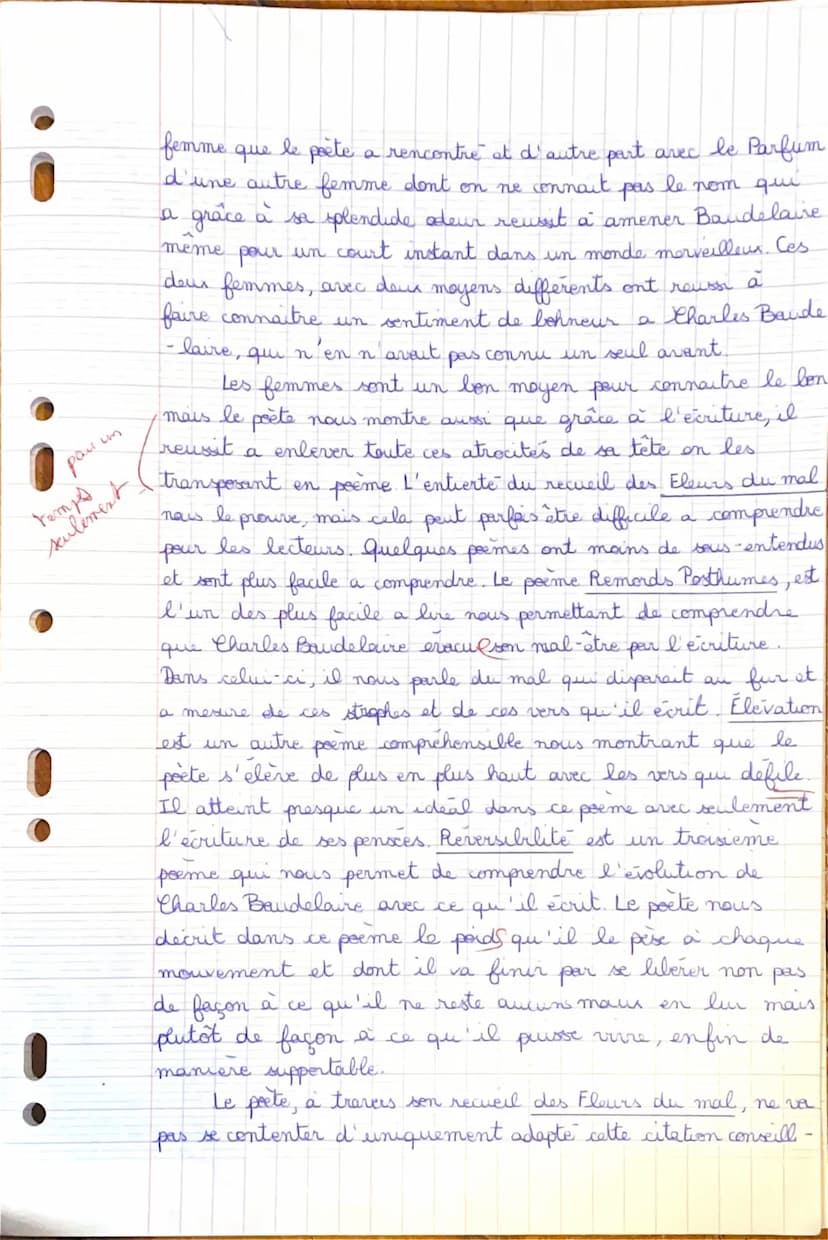 femme que le poète a rencontré et d'autre part avec le Parfum
d'une autre femme dont on ne connait pas le nom qui
a grâce à sa splendide odeur reussit à amener Baudelaire
même pour un court instant dans un monde merveilleux. Ces
deux femmes, avec deux moyens différents ont reussi à
faire connaitre un sentiment de bohneur a Charles Baude
-laire, qui n'en n'avait pas connu un seul avant.
Les femmes sont un bon moyen pour connaitre le bon
mais le poète nous montre aussi que grâce à l'écriture, il
reussit a enlever toute ces atrocités de sa tête en les
transposant en poème. L'entierté du recueil des Fleurs du mal
nous le prouve, mais cela peut parfois être difficile a comprendre
pour les lecteurs. Quelques poèmes ont moins de sous-entendus
et sont plus facile a comprendre. Le poème Remords Posthumes, est
l'un des plus facile a lire nous permettant de comprendre
que Charles Baudelaire évacue son mal-être par l'écriture.
Dans celui-ci, il nous parle du mal qui disparait au fur et
a mesure de ces strophes et de ces vers qu'il écrit. Élévation
est un autre poème compréhensible nous montrant que le
poète s'élève de plus en plus haut avec les vers qui défile.
Il atteint presque un idéal dans ce poème avec seulement
l'écriture de ses pensées. Réversibilité est un troisième
poème qui nous permet de comprendre l'évolution de
Charles Baudelaire avec ce qu'il écrit. Le poète nous
décrit dans ce poème le poids qu'il le pèse à chaque
mouvement et dont il va finir par se libérer non pas
de façon à ce qu'il ne reste aucuns maux en lui mais
plutôt de façon à ce qu'il puisse vivre, enfin de
manière supportable.
Le poète, à travers son recueil des Fleurs du mal, ne va
pas se contenter d'uniquement adapté cette citation conseill-
pour un
temps
seulement